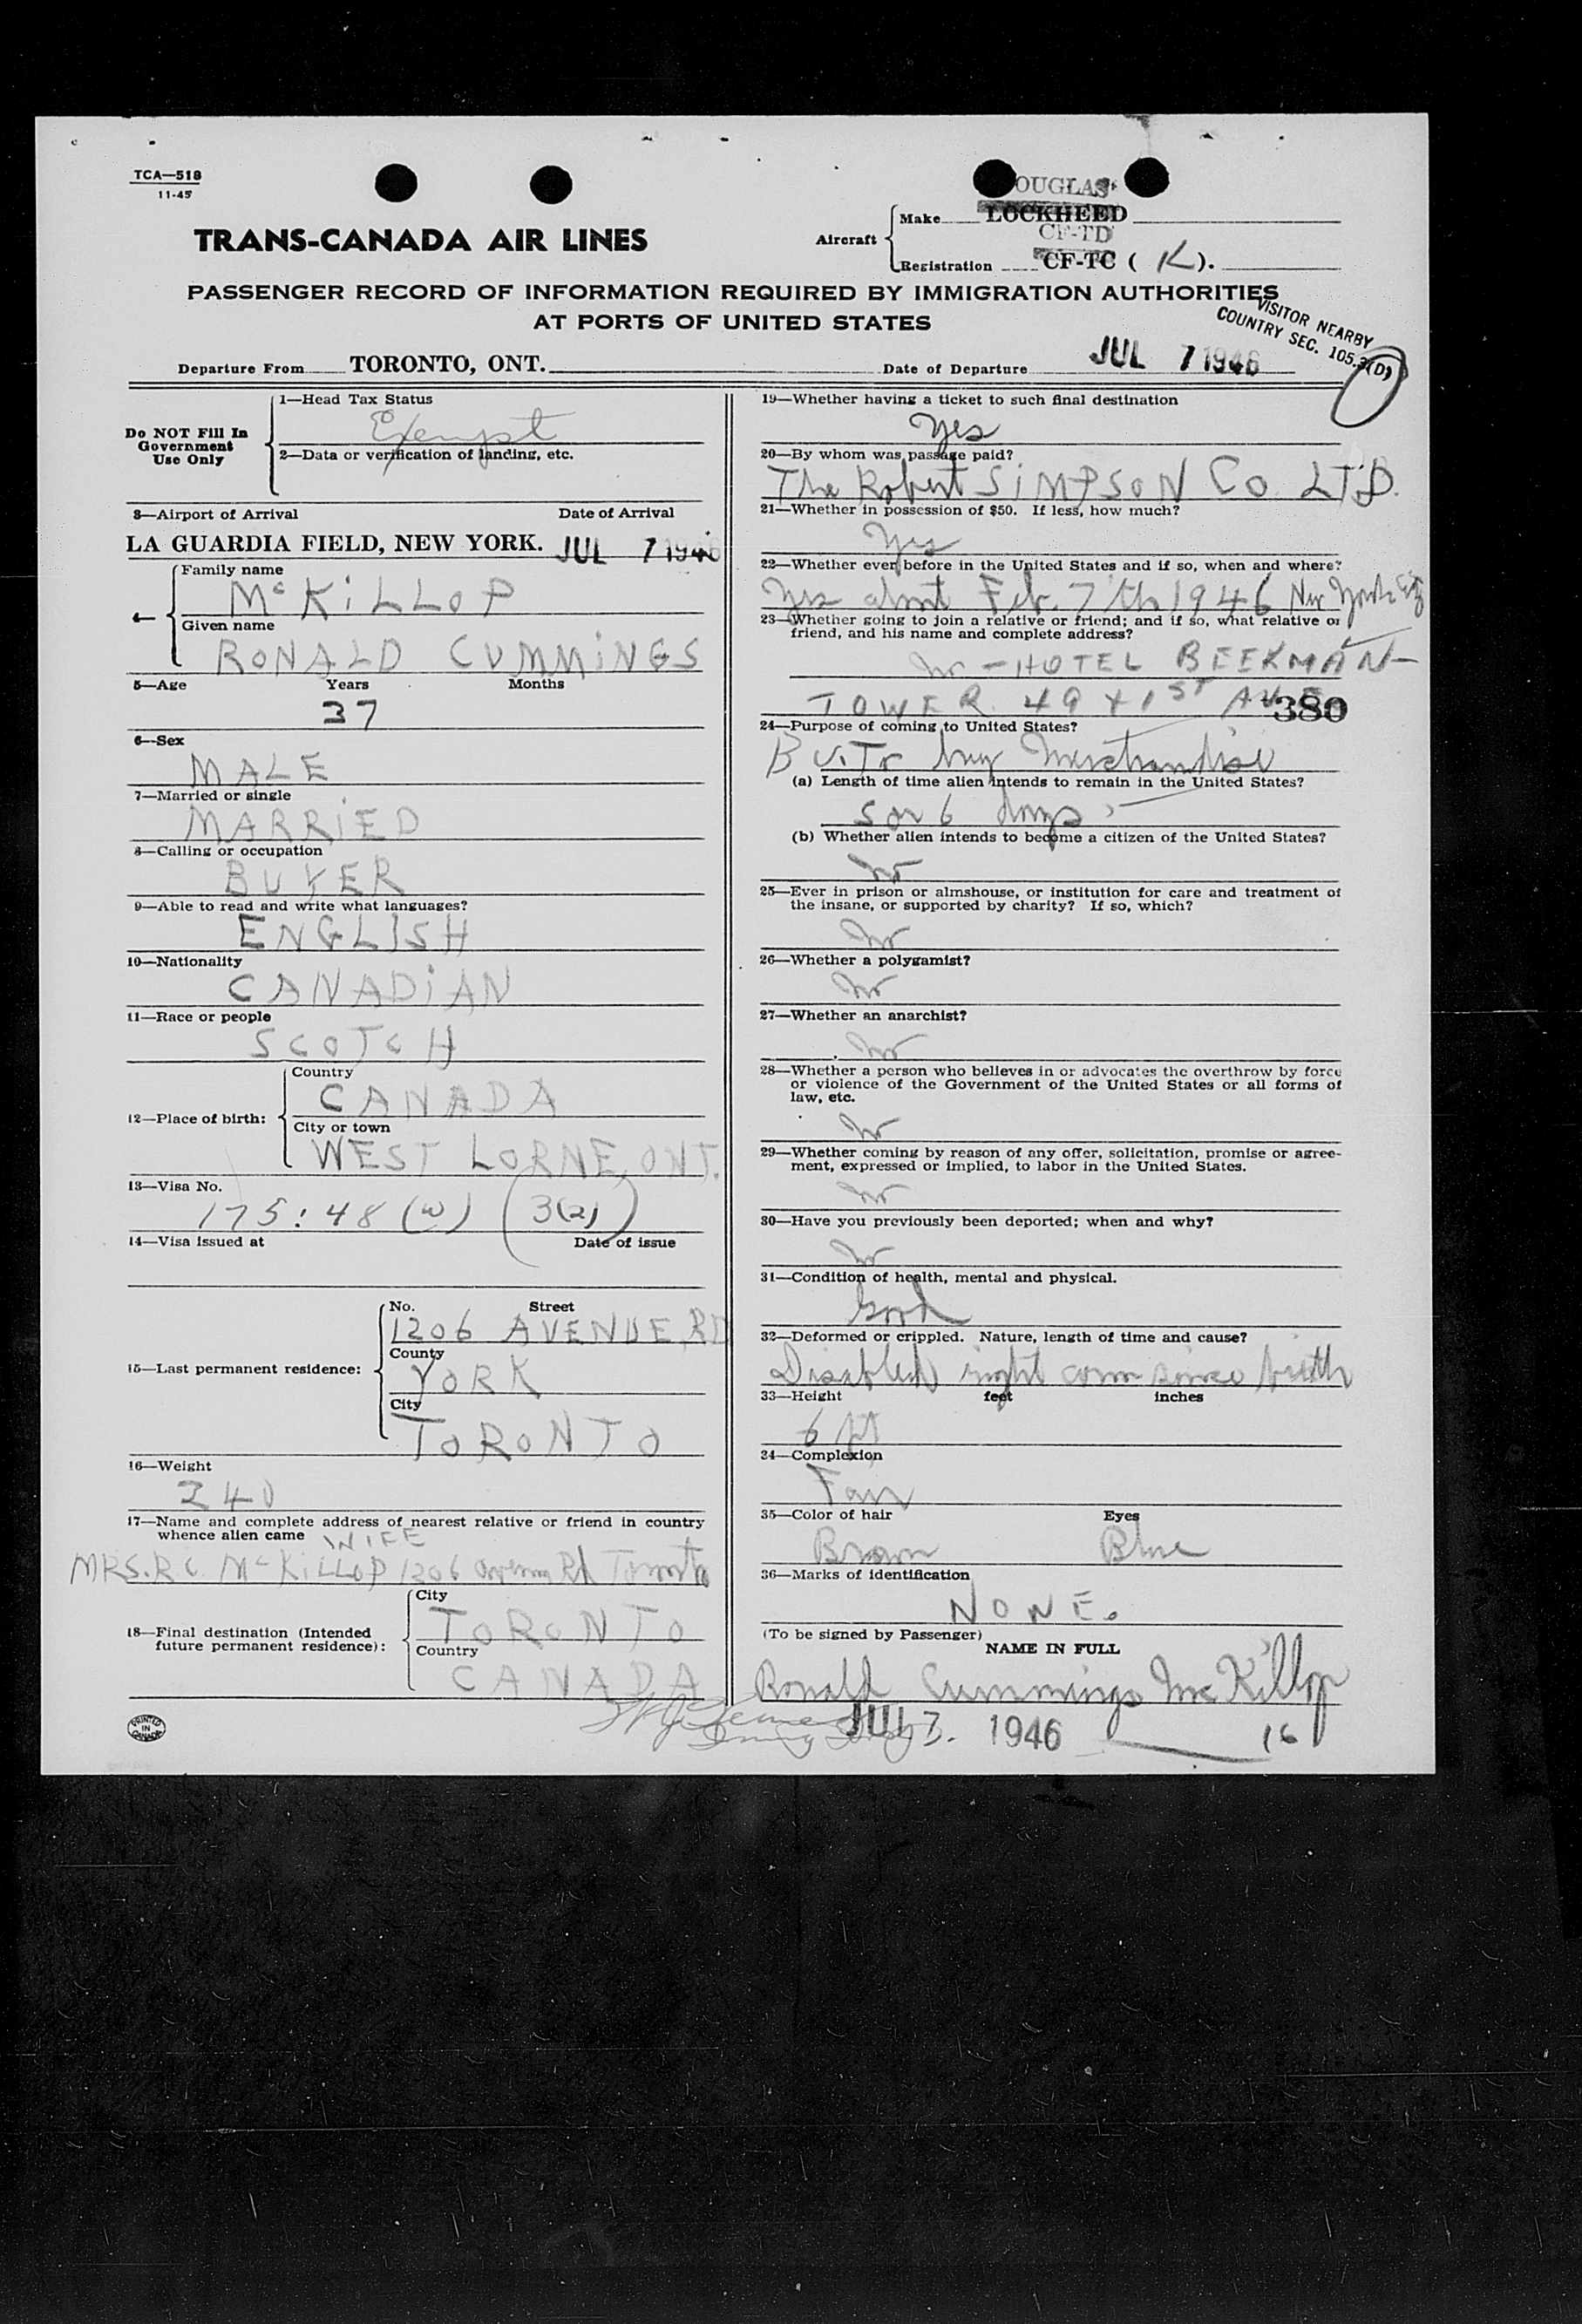 TCA—518
11-45
TRANS-CANADA AIR LINES
OUGLAS
Aircraft
Make LOCKHEED
CF-TD
Registration CF-TC ( K ).
PASSENGER RECORD OF INFORMATION REQUIRED BY IMMIGRATION AUTHORITIES
AT PORTS OF UNITED STATES
VISITOR NEARBY
COUNTRY SEC. 105.3(D)
Departure From TORONTO, ONT.
Date of Departure JUL 7 1946
Do NOT Fill In
Government
Use Only
1—Head Tax Status
Exempt
2—Data or verification of landing, etc.
3—Airport of Arrival Date of Arrival
LA GUARDIA FIELD, NEW YORK. JUL 7 1946
4—
Family name
McKiLLOP
Given name
RONALD CUMMiNGS
5—Age Years Months
37
6—Sex
MALE
7—Married or single
MARRiED
8—Calling or occupation
BUYER
9—Able to read and write what languages?
ENGLISH
10—Nationality
CANADiAN
11—Race or people
SCOTCH
12—Place of birth:
Country
CANADA
City or town
WEST LORNE, ONT.
13—Visa No.
175:48 (w) (3(2))
14—Visa issued at Date of issue
15—Last permanent residence:
No. Street
1206 AVENUE RD
County
YORK
City
TORONTO
16—Weight
240
17—Name and complete address of nearest relative or friend in country
whence alien came WIFE
MRS. R C. McKiLLOP 1206 Avenue Rd Toronto
18—Final destination (Intended
future permanent residence):
City
TORONTO
Country
CANADA
PRINTED
IN
CANADA
19—Whether having a ticket to such final destination
Yes
20—By whom was passage paid?
The Robert SiMPSON Co. LTD.
21—Whether in possession of $50. If less, how much?
Yes
22—Whether ever before in the United States and if so, when and where?
Yes about Feb. 7th 1946 New York City
23—Whether going to join a relative or friend; and if so, what relative or
friend, and his name and complete address?
No - HOTEL BEEKMAN-
TOWER. 49 & 1ST AVE
380
24—Purpose of coming to United States?
B V. To buy Merchandise
(a) Length of time alien intends to remain in the United States?
5 or 6 days
(b) Whether alien intends to become a citizen of the United States?
No
25—Ever in prison or almshouse, or institution for care and treatment of
the insane, or supported by charity? If so, which?
No
26—Whether a polygamist?
No
27—Whether an anarchist?
No
28—Whether a person who believes in or advocates the overthrow by force
or violence of the Government of the United States or all forms of
law, etc.
No
29—Whether coming by reason of any offer, solicitation, promise or agree-
ment, expressed or implied, to labor in the United States.
No
30—Have you previously been deported; when and why?
No
31—Condition of health, mental and physical.
Good
32—Deformed or crippled. Nature, length of time and cause?
Disabled right arm since birth
33—Height feet inches
6 ft
34—Complexion
Fair
35—Color of hair Eyes
Brown Blue
36—Marks of identification
NONE.
(To be signed by Passenger)
NAME IN FULL
Ronald Cummings McKillop
JUL 7. 1946
16